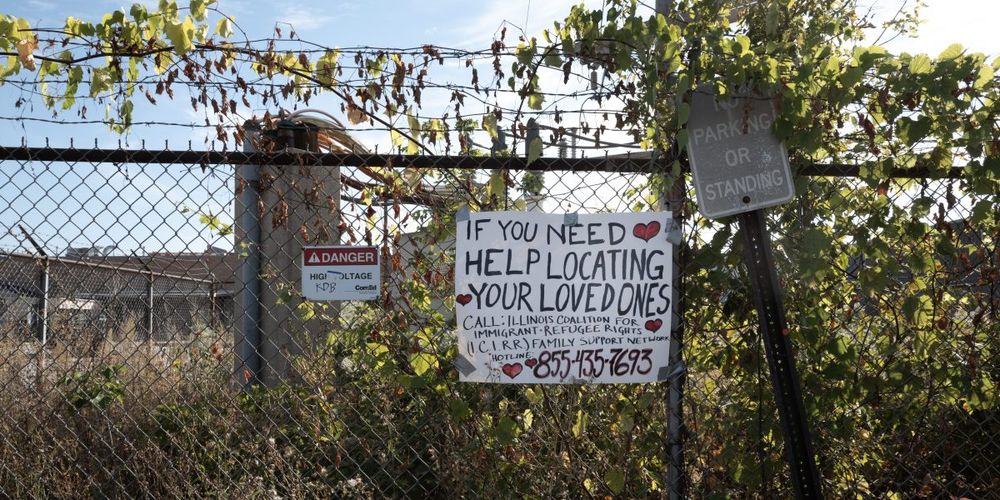 IF YOU NEED
HELP LOCATING
YOUR LOVED ONES
CALL: ILLINOIS COALITION FOR
IMMIGRANT-REFUGEE RIGHTS
(ICIRR) FAMILY SUPPORT NETWORK
HOTLINE 855-435-7693
DANGER
HIGH VOLTAGE
KDB
ComEd
PARKING
OR
STANDING